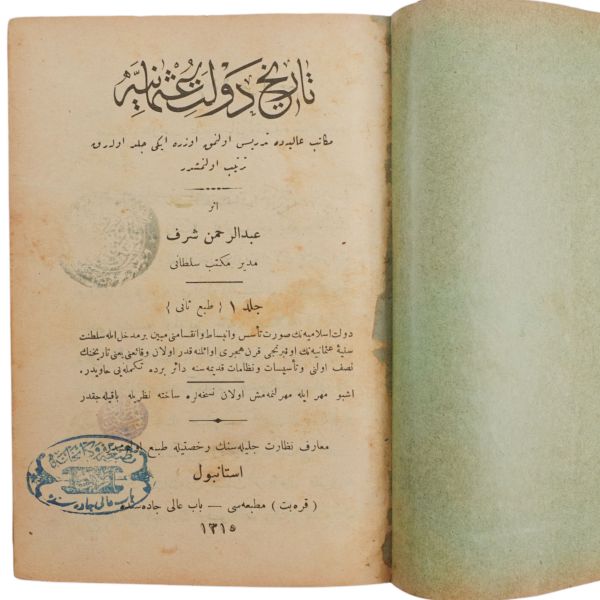 تاريخ دولت عثمانيه
مكاتب عاليه‌ده تدريس اولنمق اوزره ايكى جلد اولرق
ترتيب اولنمشدر
اثر
عبدالرحمن شرف
مدير مكتب سلطانى
جلد ١ { طبع ثانى }
دولت اسلاميه‌نك صورت تأسس وانبساط وانقسامنى مبين بر مدخل ايله سلطنت
سنيهٔ عثمانيه‌نك اون برنجى قرن هجرى اوائلنه قدر اولان وقائعنى يعنى تاريخنك
نصف اولنى وتأسيسات ونظامات قديمه‌سنه دائر برده تكمله‌يى حاويدر.
اشبو مهر ايله مهرلنمه‌مش اولان نسخه‌لره ساخته نظريله باقيله‌جقدر
معارف نظارت جليله‌سنك رخصتيله طبع
استانبول
( قره‌بت ) مطبعه‌سى — باب عالى جاده‌سنده
١٣١٥
باب عالى جاده‌سنده